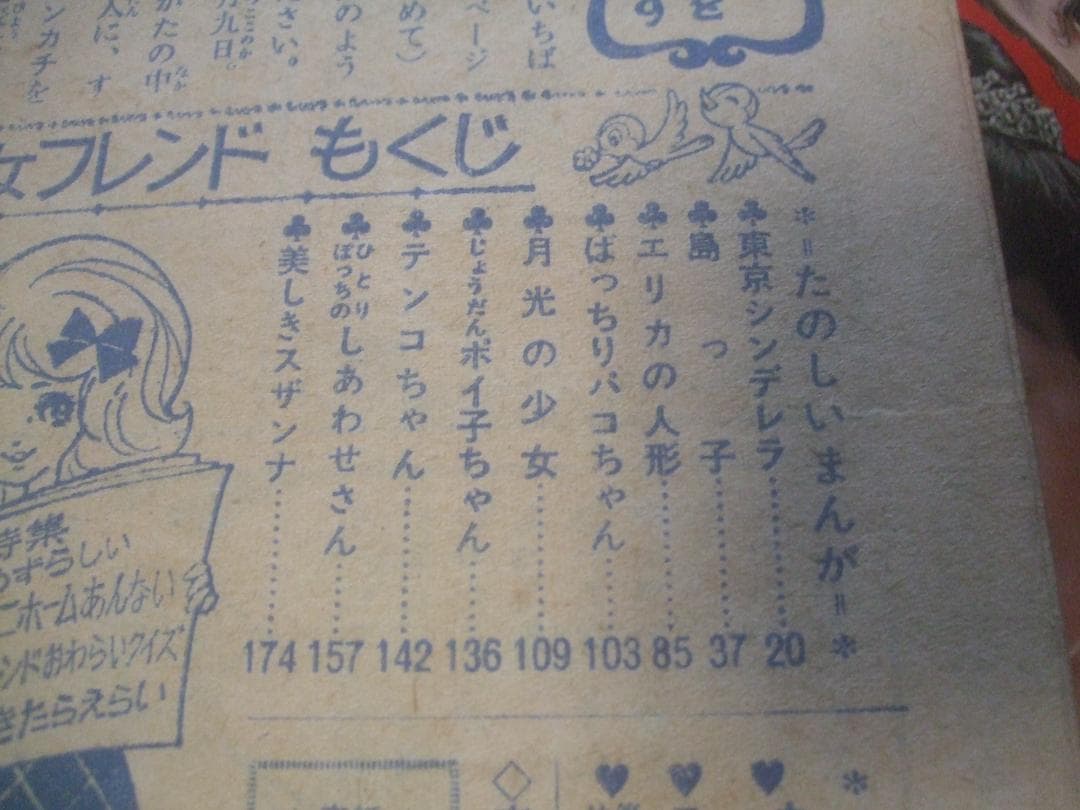 すを
いちば
ページ
めて)
のよう
ださい。
月九日、
かたの中
人に、す
ンカチを
女フレンド もくじ
*=たのしいまんが=*
♣東京シンデレラ……20
♣島っ子……37
♣エリカの人形……85
♣ぱっちりパコちゃん……103
♣月光の少女……109
♣じょうだんポイ子ちゃん……136
♣テンコちゃん……142
♣ひとりぼっちのしあわせさん……157
♣美しきスザンナ……174
特集
めずらしい
ニホームあんない
ンドおわらいクイズ
きたらえらい